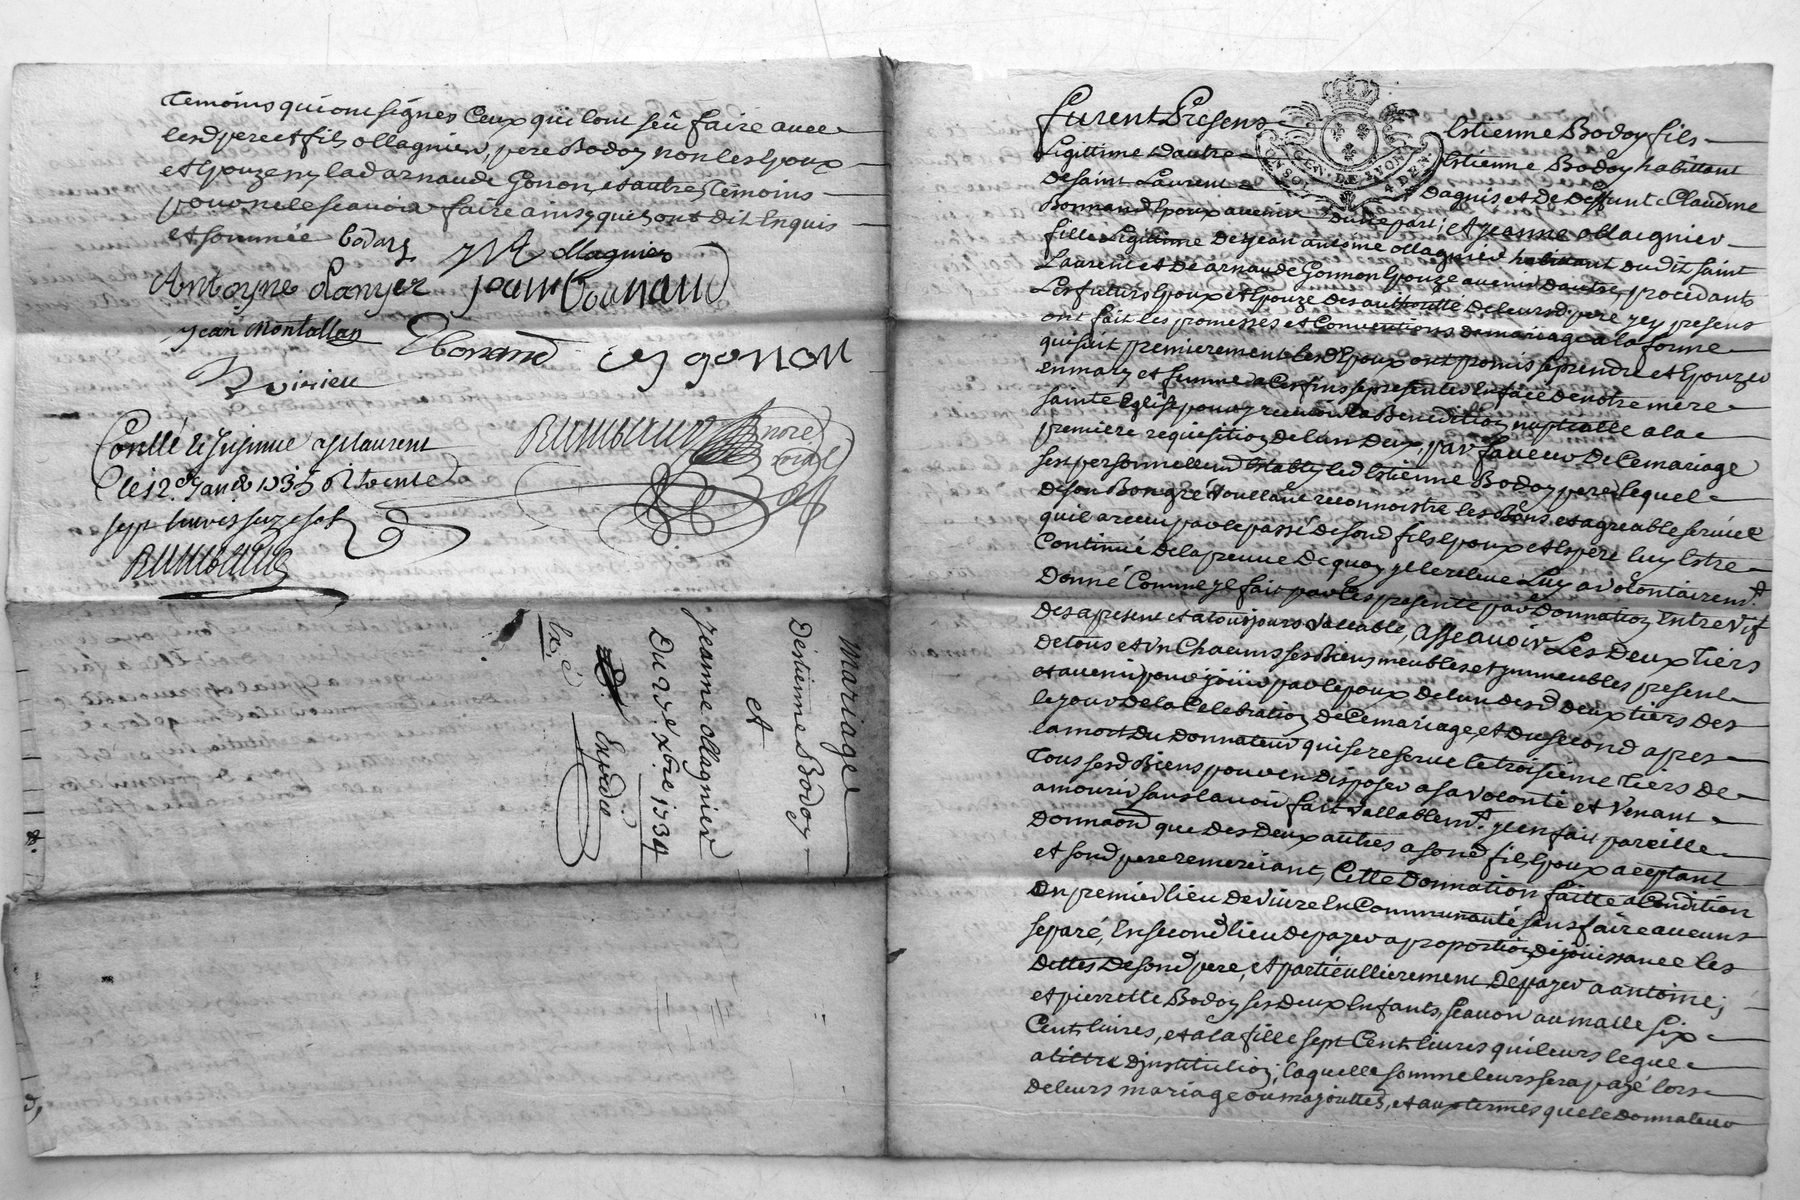 temoins qui ont signés Ceux qui lont sêu faire avec
lesd pere et fils ollagnier, pere Bodoy non les Epoux
et Epouze ny lad arnaude Gonon, et autres temoins
pour ne le scauoir faire ainsy quils ont dit Enquis
et sommée bodoy JM ollagnier
Antoyne Lanyer jean bonnand
jean Montallan EBonand gonon
Voirieu
Conllé st laurent
Ce 12e Janer 1735 R trente
sept liures seize sols
Rimbaud
Rimbaud nore royal
Mariage
Destienne Bodoy
Et
Jeanne ollagnier
Du xbre 1734
Expedié
Furent Presens Estienne Bodoy fils
Legittime dautre Estienne Bodoy habittant
de saint Laurent Dagnis et de Deffunte Claudine
Bonnand Epoux auenir dune part, et Jeanne ollagnier
fille Legittime de Jean antoine ollagnier habitant dudit saint
Laurent et de arnaude Gonnon Epouze auenir dautre, procedants
Les futurs Epoux et Epouze des authoritté de leursd pere yey presens
ont fait les promesses et Conventions de mariage a la forme
qui suit premierement lesd Epoux ont promis se prendre et Epouzer
en mary et femme a Ces fins se presenter En face de notre mere
sainte Eglise pour y receuoir la Benediction nuptialle a la
premiere requisition de lun deux, par faueur de Ce mariage
sest personnellem Estably led Estienne Bodoy pere lequel
de son Bon gré Voullant reconnoistre les Bons et agreable seruice
quil a receu par le passé de sond fils Epoux et Espere luy Estre
Continué de la preuue de quoy yl le releue Luy a Volontairemt
Donné Comme yl fait par les presente par Donnation Entre Vif
des apresent et a tousjours Vallable, assçauoir Les Deux tiers
de tous et un Chacuns ses Biens meubles et ymmeubles present
et auenir pour jouir par lepoux de lun desd deux tiers des
le jour de la Celebration de Ce mariage, et du second apres
la mort du donnateur qui se reserue le troisieme tiers de
tous sesd Biens pour en disposer a sa volonté et Venant
a mourir sans lauoir fait Vallablemt yl en fait pareille
donnaon que des deux autres a sond fils Epoux aceptant
et sond pere remerciant, Cette donnation faitte a Condition
En premier lieu de viure En Communauté sans faire aucuns
separé, En second lieu de payer a proportion de jouissance les
dettes de sond pere, et particullierement de payer a antoine,
et pierrette Bodoy ses deux Enfants, scauoir au malle six
Cent liures, et a la fille sept Cent liures quil leurs legue
a tiltre dinstitution, laquelle somme leurs sera payé lors
de leurs mariage ou majorittés, et aux termes que le donnateur